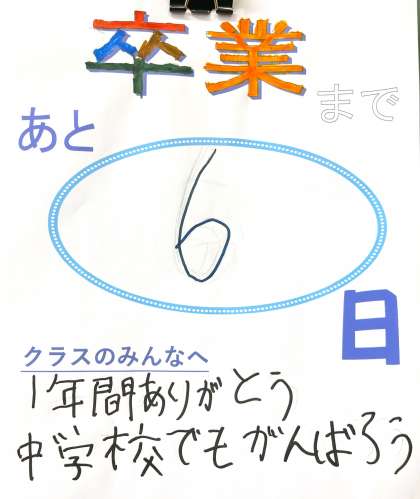 卒業
まで
あと
6
日
クラスのみんなへ
1年間ありがとう
中学校でもがんばろう